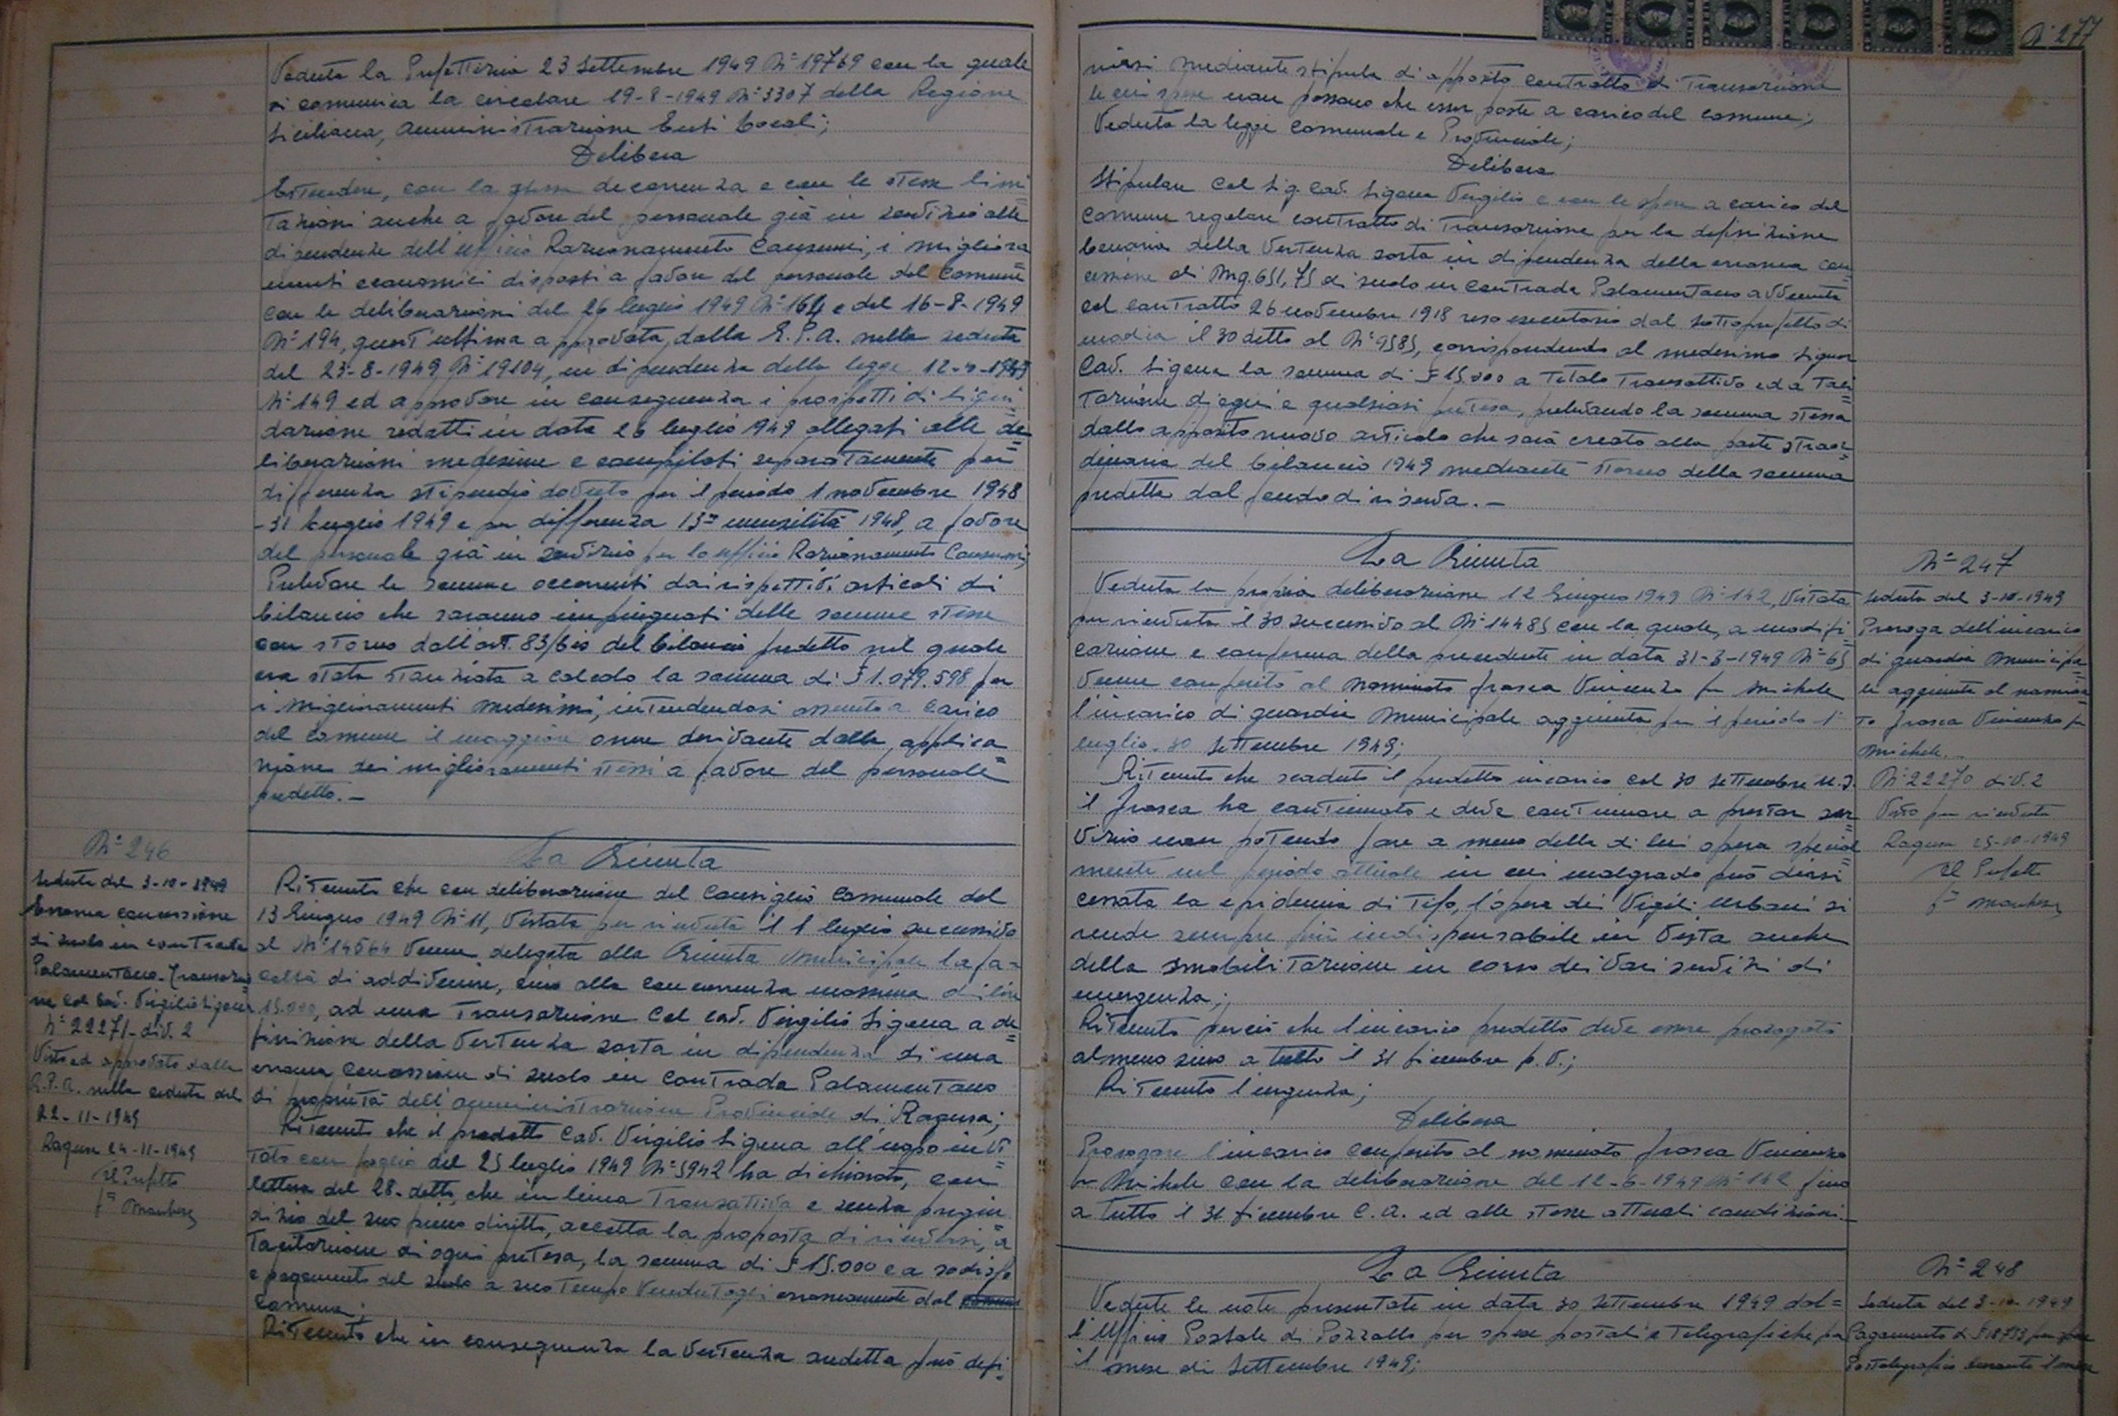 Veduta la Prefettizia 23 Settembre 1949 N° 19769 con la quale
si comunica la circolare 19-8-1949 N° 3307 della Regione
Siciliana, Amministrazione Enti Locali;
Delibera
Estendere, con la stessa decorrenza e con le stesse limi=
tazioni anche a favore del personale già in servizio alle
dipendenze dell'ufficio Razionamento Consumi, i migliora=
menti economici disposti a favore del personale del Comune
con le deliberazioni del 26 luglio 1949 N° 164 e del 16-8-1949
N° 194, quest'ultima approvata dalla G.P.A. nella seduta
del 23-8-1949 N° 19104, in dipendenza della legge 12-4-1949
N° 149 ed approvare in conseguenza i prospetti di liqui=
dazione redatti in data 26 luglio 1949 allegati alle de=
liberazioni medesime e compilati separatamente per
differenza stipendio dovuto per il periodo 1 novembre 1948
-31 luglio 1949 e per differenza 13ª mensilità 1948, a favore
del personale già in servizio per lo ufficio Razionamento Consumi;
Prelevare le somme occorrenti dai rispettivi articoli di
bilancio che saranno impinguati delle somme stesse
con storno dall'art. 83/bis del bilancio predetto nel quale
era stata stanziata a calcolo la somma di £ 1.079.598 per
i miglioramenti medesimi, intendendosi assunto a carico
del comune il maggiore onere derivante dalla applica=
zione dei miglioramenti stessi a favore del personale
predetto.-
N° 246
Seduta del 3-10-1949
Erronea concessione
di suolo in contrada
Palamentano-Transazio=
ne col Cav. Virgilio Sigona
N° 22271-div. 2
Visto ed approvato dalla
G.P.A. nella seduta del
22-11-1949
Ragusa 24-11-1949
Il Prefetto
La Giunta
Ritenuto che con deliberazione del Consiglio Comunale del
13 Giugno 1949 N° 11, vistata per ricevuta il 1 luglio successivo
al N° 14564 venne delegata alla Giunta Municipale la fa=
coltà di addivenire, sino alla concorrenza massima di lire
15.000, ad una transazione col Cav. Virgilio Sigona a de=
finizione della vertenza sorta in dipendenza di una
erronea concessione di suolo in contrada Palamentano
di proprietà dell'amministrazione Provinciale di Ragusa;
Ritenuto che il predetto Cav. Virgilio Sigona all'uopo invi=
tato con foglio del 25 luglio 1949 N° 5942 ha dichiarato, con
lettera del 28 detto, che in linea transattiva e senza pregiu
dizio del suo pieno diritto, accetta la proposta di ricevere, a
tacitazione di ogni pretesa, la somma di £ 15.000 e a sodisfo
e pagamento del suolo a suo tempo vendutogli erroneamente dal
Comune;
Ritenuto che in conseguenza la vertenza suddetta può defi-
N° 277
nirsi mediante stipula di apposito contratto di transazione
le cui spese non possono che esser poste a carico del comune;
Veduta la legge Comunale e Provinciale;
Delibera
Stipulare col Sig. Cav. Sigona Virgilio e con le spese a carico del
Comune regolare contratto di transazione per la definizione
bonaria della vertenza sorta in dipendenza della erronea con=
cessione di Mq. 651,75 di suolo in contrada Palamentano avvenuta
col contratto 26 novembre 1918 reso esecutorio dal Sottoprefetto di
Modica il 30 detto al N° 9585, corrispondendo al medesimo Signor
Cav. Sigona la somma di £ 15.000 a titolo transattivo ed a taci=
tazione d'ogni e qualsiasi pretesa, prelevando la somma stessa
dallo apposito nuovo articolo che sarà creato alla parte straor=
dinaria del bilancio 1949 mediante storno della somma
predetta dal fondo di riserva.-
La Giunta
Veduta la propria deliberazione 12 Giugno 1949 N° 142, vistata
per ricevuta il 30 successivo al N° 14485 con la quale, a modifi=
cazione e conferma della precedente in data 31-3-1949 N° 65
venne conferito al nominato Frasca Vincenzo fu Michele
l'incarico di guardia Municipale aggiunta per il periodo 1°
luglio-30 Settembre 1949;
Ritenuto che scaduto il predetto incarico col 30 Settembre u.s.
il Frasca ha continuato e deve continuare a prestar ser=
vizio non potendo fare a meno della di lui opera special=
mente nel periodo attuale in cui malgrado può dirsi
cessata la epidemia di tifo, l'opera dei Vigili Urbani si
rende sempre più indispensabile in vista anche
della smobilitazione in corso dei vari servizi di
emergenza;
Ritenuto perciò che l'incarico predetto deve essere prorogato
almeno sino a tutto il 31 Dicembre p.v.;
Ritenuto l'urgenza;
Delibera
Prorogare l'incarico conferito al nominato Frasca Vincenzo
fu Michele con la deliberazione del 12-6-1949 N° 142 fino
a tutto il 31 Dicembre c.a. ed alle stesse attuali condizioni.-
N° 247
Seduta del 3-10-1949
Proroga dell'incarico
di guardia Municipa=
le aggiunta al nomina=
to Frasca Vincenzo fu
Michele.-
N° 22270 div. 2
Visto per ricevuta
Ragusa 25-10-1949
Il Prefetto
La Giunta
Vedute le note presentate in data 30 Settembre 1949 dal=
l'Ufficio Postale di Pozzallo per spese postali e telegrafiche per
il mese di Settembre 1949;
N° 248
Seduta del 3-10-1949
Pagamento di per spese
Postelegrafiche durante il mese